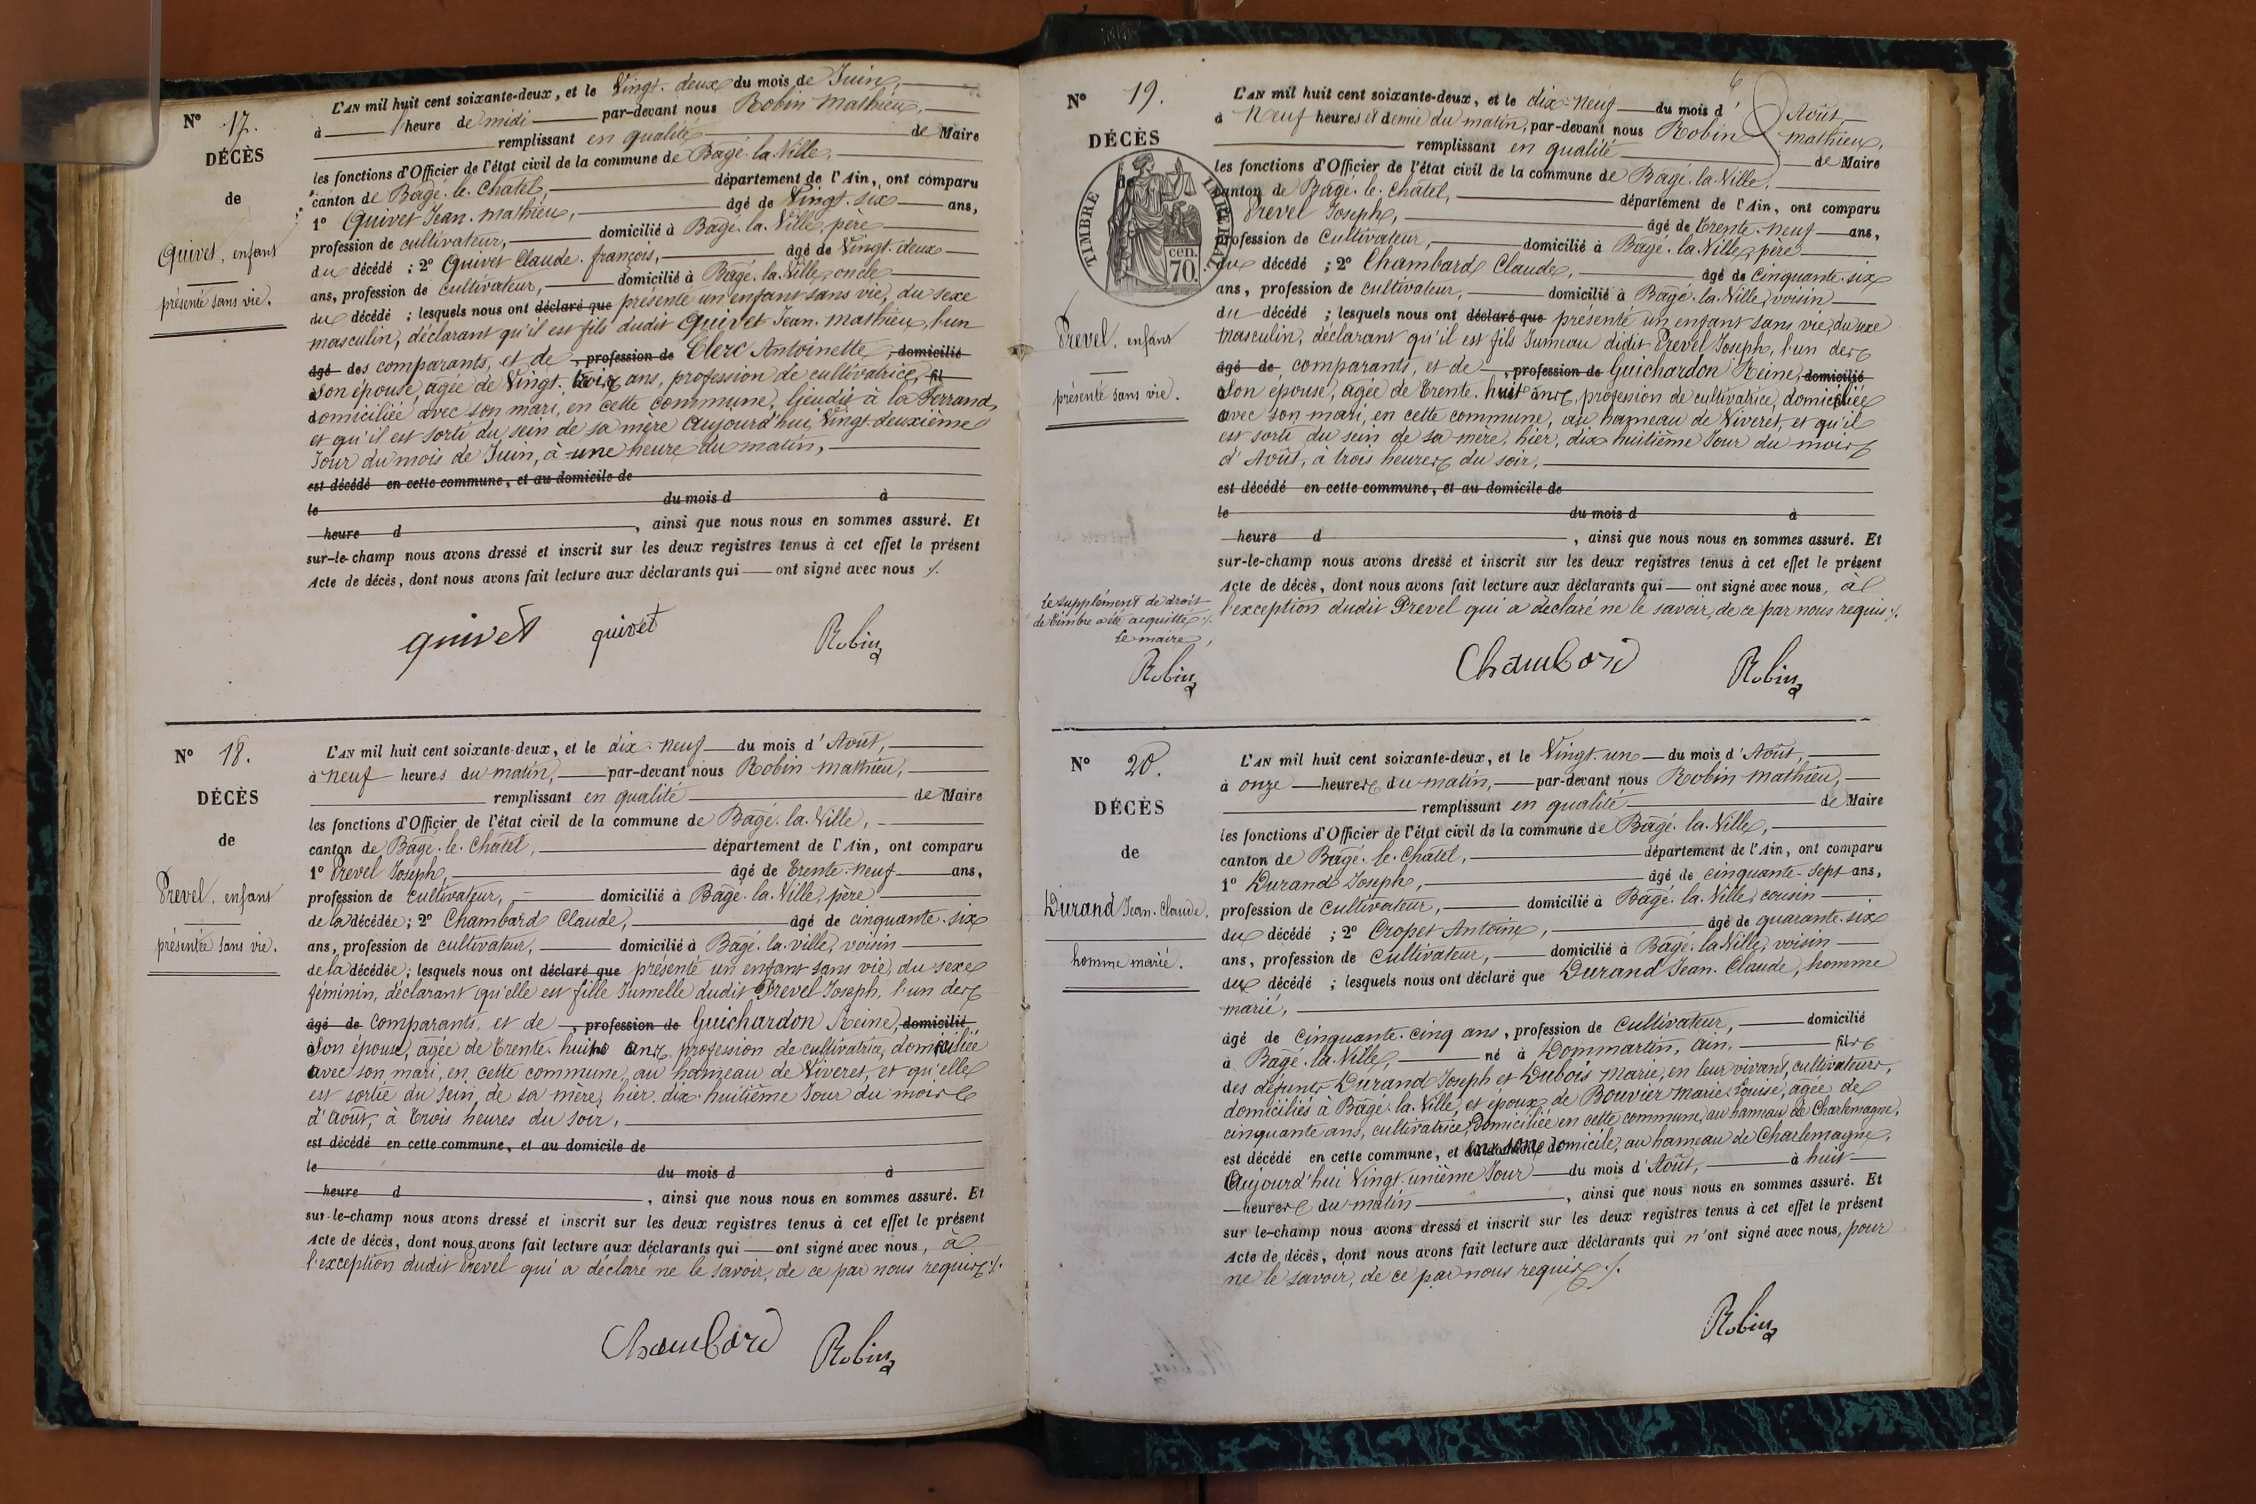 N° 17.
DÉCÈS
de
Quivet, enfant
présenté sans vie.
L'AN mil huit cent soixante-deux, et le Vingt-deux du mois de Juin,
à heure de midi par-devant nous Robin Mathieu,
remplissant en qualité de Maire
les fonctions d'Officier de l'état civil de la commune de Bâgé-la-Ville,
canton de Bâgé-le-Châtel, département de l'Ain, ont comparu
1° Quivet Jean-Mathieu, âgé de Vingt-six ans,
profession de cultivateur, domicilié à Bâgé-la-Ville, père
du décédé ; 2° Quivet Claude-françois, âgé de Vingt-deux
ans, profession de cultivateur, domicilié à Bâgé-la-Ville, oncle
du décédé ; lesquels nous ont déclaré que présenté un enfant sans vie, du sexe
masculin, déclarant qu'il est fils dudit Quivet Jean-Mathieu, l'un
âgé des comparants, et de , profession de Clerc Antoinette, domicilié
Son épouse, âgée de Vingt-trois ans, profession de cultivatrice, fil
domiciliée avec son mari, en cette commune, lieudit à la Ferrand,
et qu'il est sorti du sein de sa mère Aujourd'hui, Vingt-deuxième
Jour du mois de Juin, à une heure du matin,
est décédé en cette commune, et au domicile de
le du mois d à
heure d , ainsi que nous nous en sommes assuré. Et
sur-le-champ nous avons dressé et inscrit sur les deux registres tenus à cet effet le présent
Acte de décès, dont nous avons fait lecture aux déclarants qui ont signé avec nous ./.
quivet quivet Robin
N° 18.
DÉCÈS
de
Prevel, enfant
présentée sans vie.
L'AN mil huit cent soixante-deux, et le dix-neuf du mois d'Août,
à neuf heures du matin, par-devant nous Robin Mathieu,
remplissant en qualité de Maire
les fonctions d'Officier de l'état civil de la commune de Bâgé-la-Ville,
canton de Bâgé-le-Châtel, département de l'Ain, ont comparu
1° Prevel Joseph, âgé de trente-neuf ans,
profession de cultivateur, domicilié à Bâgé-la-Ville, père
de la décédée ; 2° Chambard Claude, âgé de cinquante-six
ans, profession de cultivateur, domicilié à Bâgé-la-Ville, voisin
de la décédée ; lesquels nous ont déclaré que présenté un enfant sans vie, du sexe
féminin, déclarant qu'elle est fille Jumelle dudit Prevel Joseph, l'un des
âgé de comparants, et de , profession de Guichardon Reine, domicilié
Son épouse, âgée de trente-huit ans, profession de cultivatrice, domiciliée
avec son mari, en cette commune, au hameau de Viveret, et qu'elle
est sortie du sein de sa mère, hier, dix-huitième Jour du mois
d'Août, à trois heures du soir,
est décédé en cette commune, et au domicile de
le du mois d à
heure d , ainsi que nous nous en sommes assuré. Et
sur-le-champ nous avons dressé et inscrit sur les deux registres tenus à cet effet le présent
Acte de décès, dont nous avons fait lecture aux déclarants qui ont signé avec nous, à
l'exception dudit Prevel qui a déclaré ne le savoir, de ce par nous requis ./.
Chambard Robin
6
N° 19.
DÉCÈS
de
TIMBRE IMPÉRIAL
70 cen.
Prevel, enfant
présenté sans vie.
L'AN mil huit cent soixante-deux, et le dix-neuf du mois d'Août,
à Neuf heures et demie du matin, par-devant nous Robin Mathieu,
remplissant en qualité de Maire
les fonctions d'Officier de l'état civil de la commune de Bâgé-la-Ville,
canton de Bâgé-le-Châtel, département de l'Ain, ont comparu
Prevel Joseph, âgé de trente-neuf ans,
profession de Cultivateur, domicilié à Bâgé-la-Ville, père
du décédé ; 2° Chambard Claude, âgé de cinquante-six
ans, profession de cultivateur, domicilié à Bâgé-la-Ville, voisin
du décédé ; lesquels nous ont déclaré que présenté un enfant sans vie, du sexe
masculin, déclarant qu'il est fils Jumeau dudit Prevel Joseph, l'un des
âgé de comparants, et de , profession de Guichardon Reine, domicilié
Son épouse, âgée de trente-huit ans, profession de cultivatrice, domiciliée
avec son mari, en cette commune, au hameau de Viveret, et qu'il
est sorti du sein de sa mère, hier, dix-huitième Jour du mois
d'Août, à trois heures du soir,
est décédé en cette commune, et au domicile de
le du mois d à
heure d , ainsi que nous nous en sommes assuré. Et
sur-le-champ nous avons dressé et inscrit sur les deux registres tenus à cet effet le présent
Acte de décès, dont nous avons fait lecture aux déclarants qui ont signé avec nous, à
l'exception dudit Prevel qui a déclaré ne le savoir, de ce par nous requis ./.
Le supplément de droit
de timbre a été acquitté ./.
Le maire,
Robin
Chambard Robin
N° 20.
DÉCÈS
de
Durand Jean-Claude,
homme marié.
L'AN mil huit cent soixante-deux, et le Vingt-un du mois d'Août,
à onze heures du matin, par-devant nous Robin Mathieu,
remplissant en qualité de Maire
les fonctions d'Officier de l'état civil de la commune de Bâgé-la-Ville,
canton de Bâgé-le-Châtel, département de l'Ain, ont comparu
1° Durand Joseph, âgé de cinquante-sept ans,
profession de cultivateur, domicilié à Bâgé-la-Ville, cousin
du décédé ; 2° Cropet Antoine, âgé de quarante-six
ans, profession de cultivateur, domicilié à Bâgé-la-Ville, voisin
du décédé ; lesquels nous ont déclaré que Durand Jean-Claude, homme
marié,
âgé de cinquante-cinq ans, profession de cultivateur, domicilié
à Bâgé-la-Ville, né à Dommartin, Ain, fils
des défunts Durand Joseph et Dubois Marie, en leur vivant, cultivateurs,
domiciliés à Bâgé-la-Ville, et époux de Bouvier Marie-Louise, âgée de
cinquante ans, cultivatrice, domiciliée en cette commune, au hameau de Charlemagne,
est décédé en cette commune, et en son domicile, au hameau de Charlemagne,
Aujourd'hui Vingt-unième Jour du mois d'Août, à huit
heures du matin , ainsi que nous nous en sommes assuré. Et
sur le-champ nous avons dressé et inscrit sur les deux registres tenus à cet effet le présent
Acte de décès, dont nous avons fait lecture aux déclarants qui n'ont signé avec nous, pour
ne le savoir, de ce par nous requis ./.
Robin